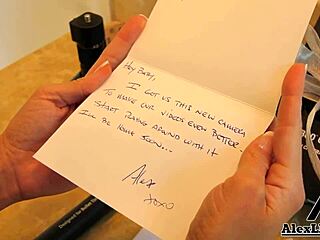 Hey Baby,
I got us this new camera
to make our videos even better.
Start playing around with it
I'll be home soon...
Alex
xoxo
Designed for
AlexL